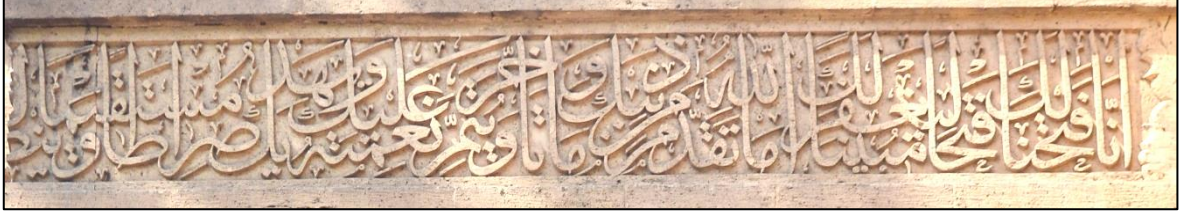 إنا فتحنا لك فتحا مبينا ليغفر لك الله ما تقدم من ذنبك وما تأخر ويتم نعمته عليك ويهديك صراطا مستقيما و